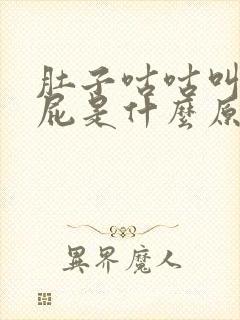 肚子咕咕叫
屁是什麼原
異界魔人